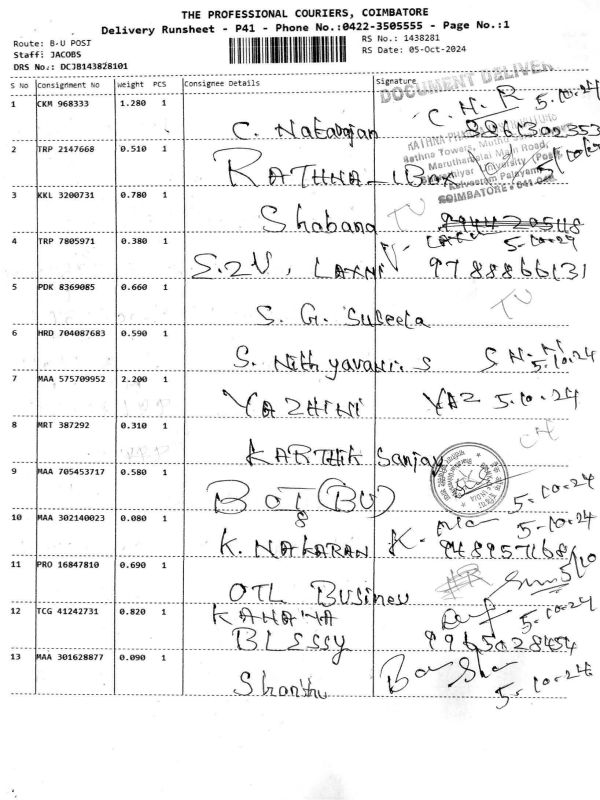 THE PROFESSIONAL COURIERS, COIMBATORE
Delivery Runsheet - P41 - Phone No.:0422-3505555 - Page No.:1
Route: B-U POST
RS No.: 1438281
Staff: JACOBS
RS Date: 05-Oct-2024
DRS No.: DCJB143828101
S No Consignment No Weight PCS Consignee Details Signature
DOCUMENT DELIVER
1 CKM 968333 1.280 1
C. H. R 5.10.24
C. Natarajan
2 TRP 2147668 0.510 1
Rathna Towers,
Maruthamalai Main Road,
COIMBATORE
RATHNA
3 KKL 3200731 0.780 1
Shabana TV
4 TRP 7805971 0.380 1
5-10-24
9788866131
5 PDK 8369085 0.660 1
TV
S. G. Suseela
6 HRD 704087683 0.590 1
S. Nithyavani. S 5.10.24
7 MAA 575709952 2.200 1
YAZHINI YAZ 5.10.24
8 MRT 387292 0.310 1
KARTHIK Sanjay
9 MAA 705453717 0.580 1
BOI (BU) 5-10-24
10 MAA 302140023 0.080 1
5-10-24
K.
11 PRO 16847810 0.690 1
5/10
OTL Business
12 TCG 41242731 0.820 1
5-10-24
BLESSY 9965028454
13 MAA 301628877 0.090 1
Shanthi
5-10-24